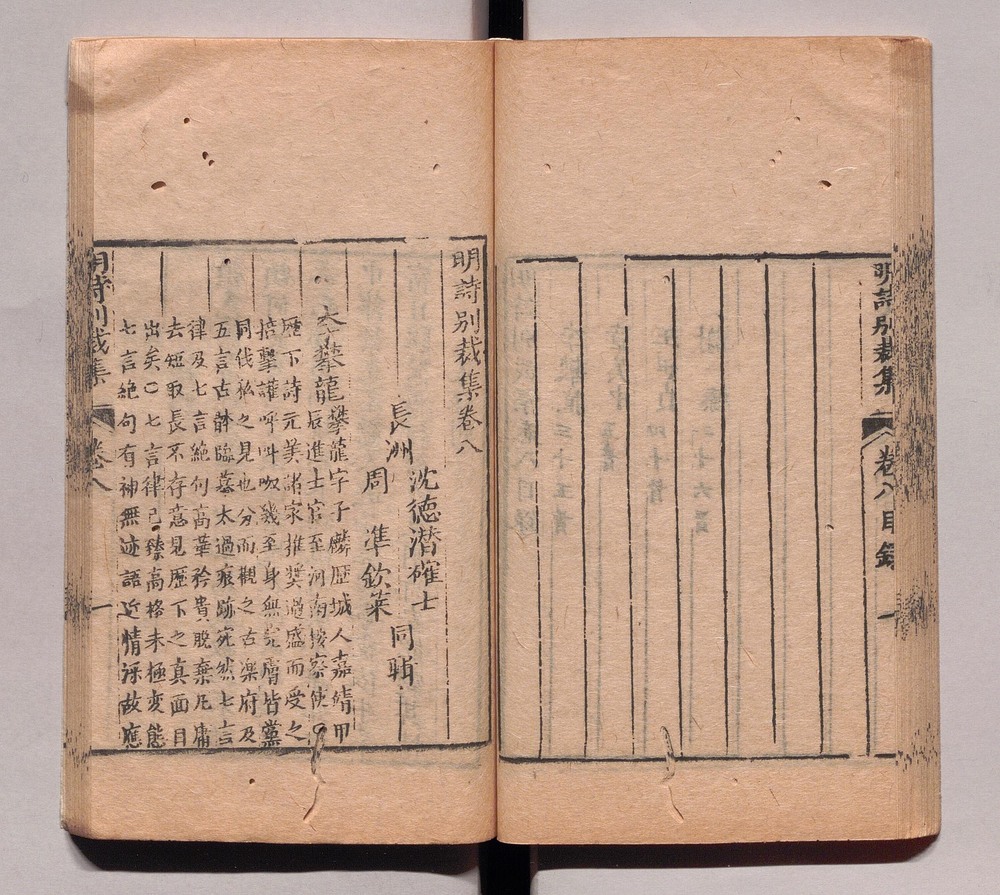 明詩別裁集
卷八目錄
一
明詩別裁集卷八
長洲
沈德潛確士
周準欽萊
同輯
李攀龍
攀龍字子麟歷城人嘉靖甲
辰進士官至河南按察使〇
歷下詩元美諸家推奬過盛而受之
掊擊讙呼叫呶幾至身無完膚皆黨
同伐私之見也分而觀之古樂府及
五言古體臨摹太過痕跡宛然七言
律及七言絶句高華矜貴脫棄凡庸
去短取長不存意見歷下之真面目
出矣〇七言律已臻高格未極変態
七言絶句有神無迹語近情深故應
明詩別裁集
卷八
一